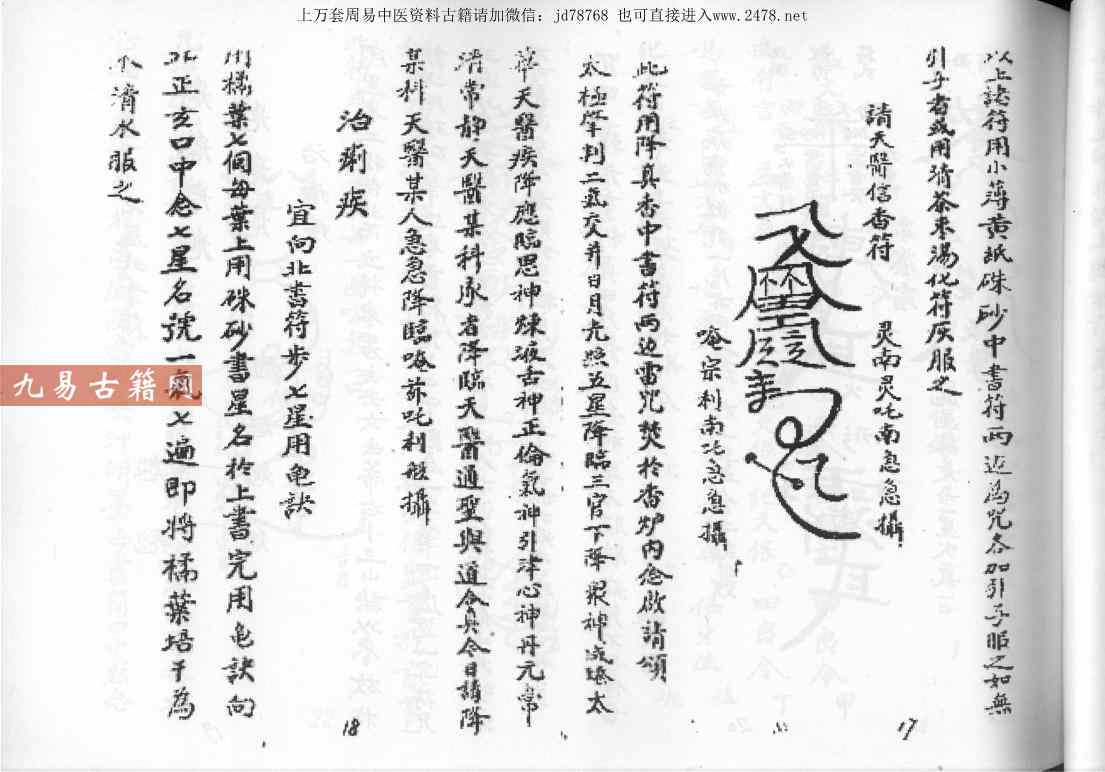 上万套周易中医资料古籍请加微信：jd78768 也可直接进入www.2478.net
以上諸符用小薄黄紙硃砂中書符兩边為咒各加引子服之如無
引子者或用清茶米湯化符灰服之
請天醫信香符
灵南灵吒南急急攝
唵宗利南吒急急攝
此符用降真香中書符兩边雷咒焚於香炉内念啟請頌
太極肇判二氣交并日月光照五星降臨三官下降衆神咸臻太
華天醫疾降應臨思神煉液古神正倫氣神引津心神丹元常
清常静天醫某科承者降臨天醫通聖與道合真今日請降
某科天醫某人急急降臨唵 吒利 攝
治痢疾
宜向北書符步七星用龟訣
用橘葉七個每葉上用硃砂書星名於上書完用龟訣向
北正玄口中念七星名號一氣七遍即将橘葉培干為
末清水服之
17
18
九易古籍网